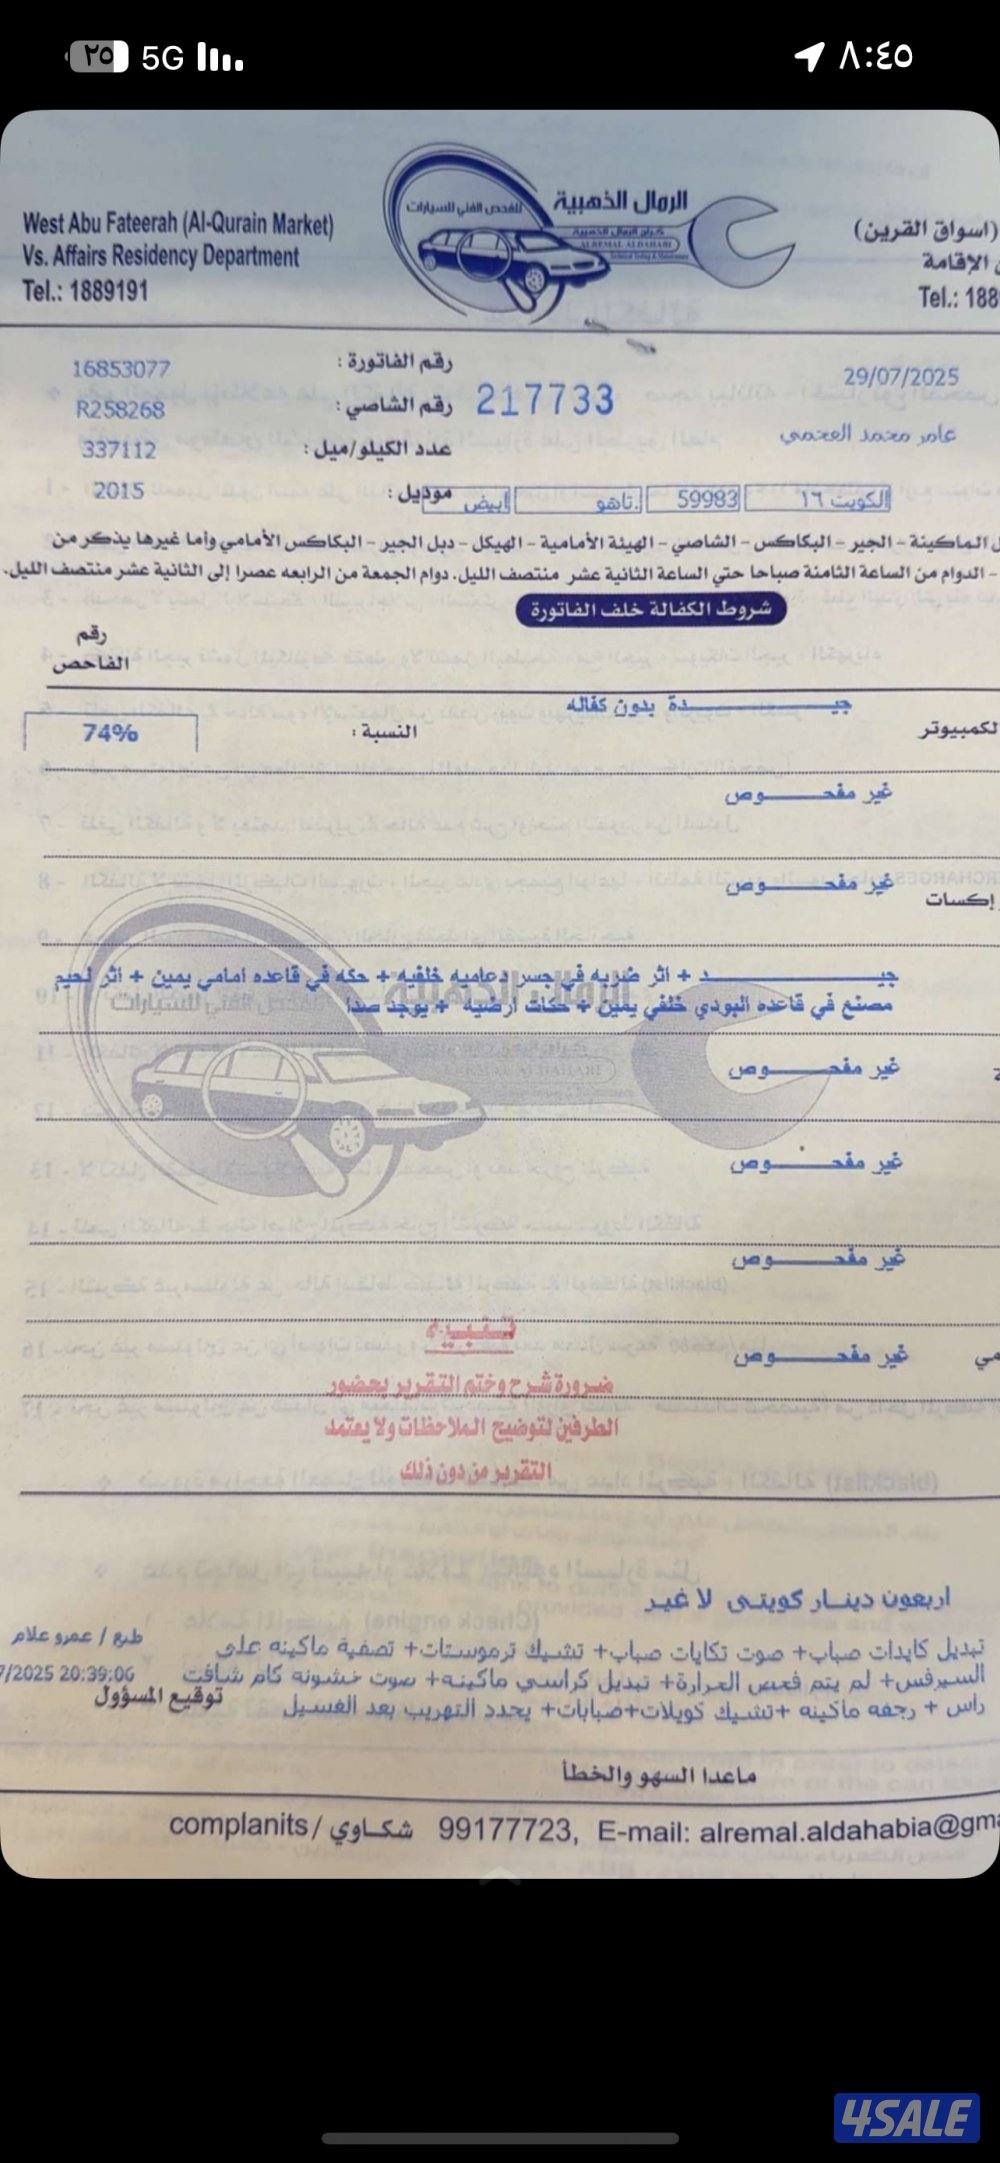 ٨:٤٥
5G
٢٥
West Abu Fateerah (Al-Qurain Market)
Vs. Affairs Residency Department
Tel.: 1889191
الرمال الذهبية
للفحص الفني للسيارات
كراج الرمال الذهبية
ALREMAL ALDAHABI
Technical Testing & Maintenance
(اسواق القرين)
الإقامة
Tel.: 188
29/07/2025
217733
رقم الفاتورة : 16853077
رقم الشاصي : R258268
عامر محمد العجمي
عدد الكيلو/ميل : 337112
موديل : 2015
الكويت ١٦ 59983 تاهو. ابيض
الماكينة - الجير - البكاكس - الشاصي - الهيئة الأمامية - الهيكل - دبل الجير - البكاكس الأمامي وأما غيرها يذكر من
- الدوام من الساعة الثامنة صباحا حتي الساعة الثانية عشر منتصف الليل. دوام الجمعة من الرابعه عصرا إلى الثانية عشر منتصف الليل.
شروط الكفالة خلف الفاتورة
رقم
الفاحص
جيـــــدة بدون كفاله
لكمبيوتر
النسبة : 74%
غير مفحـــــوص
غير مفحـــــوص
إكسات
جيـــــد + اثر ضربه في جسر دعاميه خلفيه + حكه في قاعده امامي يمين + اثر لحيم
مصنع في قاعده البودي خلفي يمين + حكات ارضيه + يوجد صدا
غير مفحـــــوص
غير مفحـــــوص
غير مفحـــــوص
غير مفحـــــوص
مي
تنبيه
ضرورة شرح وختم التقرير بحضور
الطرفين لتوضيح الملاحظات ولا يعتمد
التقرير من دون ذلك
اربعون دينـار كويتى لا غير
طبع / عمرو علام
تبديل كايدات صباب+ صوت تكايات صباب+ تشيك ترموستات+ تصفية ماكينه على
7/2025 20:39:06
السيرفس+ لم يتم فحص الحرارة+ تبديل كراسي ماكينه+ صوت خشونه كام شافت
توقيع المسؤول
راس + رجفه ماكينه +تشيك كويلات+صبابات+ يحدد التهريب بعد الغسيل
ماعدا السهو والخطأ
complanits/ شكاوي 99177723, E-mail: alremal.aldahabia@gma
4SALE